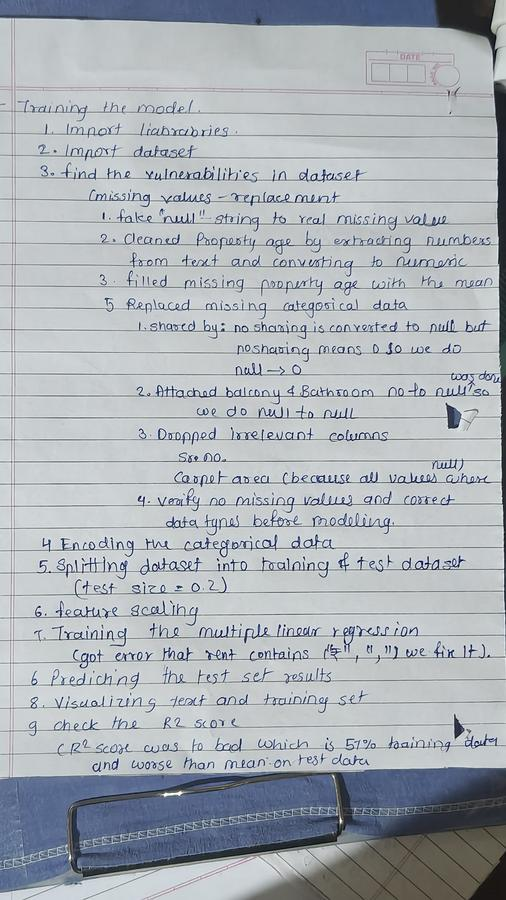 DATE
- Training the model.
1. Import liabrabries.
2. Import dataset
3. find the vulnerabilities in dataset
(missing values - replacement
1. fake "null" string to real missing value
2. Cleaned Property age by extracting numbers
from text and converting to numeric
3. filled missing property age with the mean
5 Replaced missing categorical data
1. shared by: no sharing is converted to null but
nosharing means 0 so we do
null → 0
was done
2. Attached balcony & Bathroom no to null so
we do null to null
3. Dropped irrelevant columns
Sr. no.
null)
Carpet area (because all values where
4. verify no missing values and correct
data types before modeling.
4 Encoding the categorical data
5. Splitting dataset into training & test dataset
(test size = 0.2)
6. feature scaling
7. Training the multiple linear regression
(got error that rent contains ("₹", ",") we fix it).
6 Predicting the test set results
8. Visualizing text and training set
9 check the R2 score
(R² score was to bad which is 57% training data
and worse than mean on test data